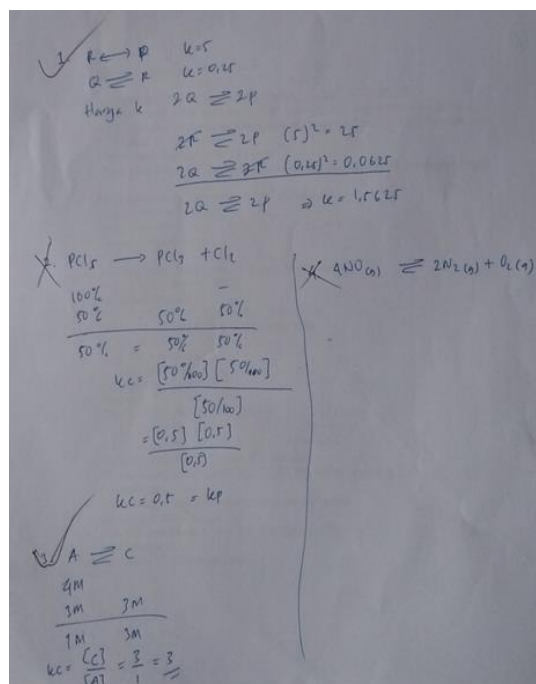 1. R ⟷ P K=5
Q ⇌ R K=0,25
Harga K 2Q ⇌ 2P
2R ⇌ 2P (5)² = 25
2Q ⇌ 2R (0,25)² = 0,0625
2Q ⇌ 2P ⇒ K = 1,5625
2. PCl5 ⟶ PCl3 + Cl2
100% -
50% 50% 50%
50% = 50% 50%
Kc = [50%/100] [50/100]
[50/100]
= [0,5] [0,5]
[0,5]
Kc = 0,5 = Kp
3. A ⇌ C
4M
3M 3M
1M 3M
Kc = [C] = 3 = 3
[A] 1
4. 4NO(g) ⇌ 2N2(g) + O2(g)